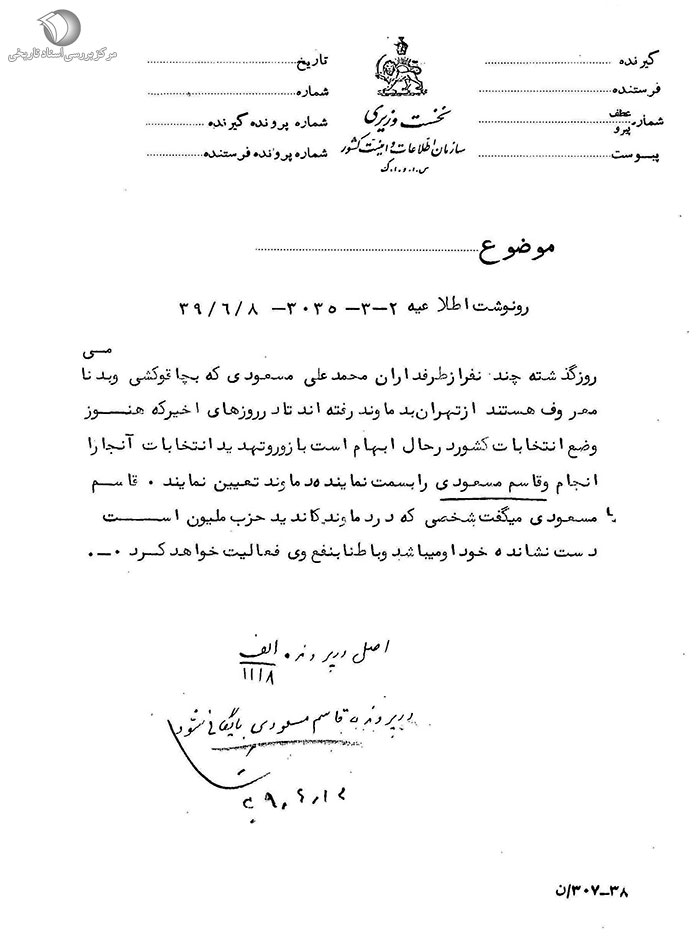 مرکز بررسی اسناد تاریخی
گیرنده
فرستنده
شماره عطف
پیرو
پیوست
نخست وزیری
سازمان اطلاعات و امنیت کشور
س.ا.و.ا.ک
تاریخ
شماره
شماره پرونده گیرنده
شماره پرونده فرستنده
موضوع
رونوشت اطلاعیه ۲-۳-۳۰۳۵ - ۳۹/۶/۸
روزگذشته چند نفر از طرفداران محمد علی مسعودی که بچاقوکشی وبدنا می
معروف هستند از تهران بدماوند رفته اند تا در روزهای اخیر که هنوز
وضع انتخابات کشور در حال ابهام است با زور و تهدید انتخابات آنجا را
انجام و قاسم مسعودی را بسمت نماینده دماوند تعیین نمایند . قاسم
مسعودی میگفت شخصی که در دماوند کاندید حزب ملیون است با
دست نشانده خود او میباشد و باطنا بنفع وی فعالیت خواهد کرد ۰ـ۰
اصل در پرونده الف
۱۱۱۸
در پرونده قاسم مسعودی بایگانی شود
۳۸-۳۰۷/ن